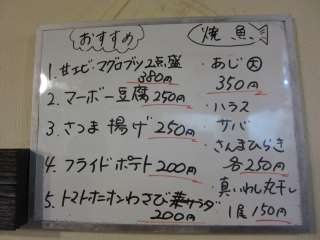 おすすめ
1. 甘エビ・マグロブツ2点盛
380円
2. マーボー豆腐 250円
3. さつま揚げ 250円
4. フライドポテト 200円
5. トマトオニオンわさび菜サラダ
200円
焼魚
・あじ 大
350円
・ハラス
・サバ
・さんまひらき
各250円
・真いわし丸干し
1尾 150円